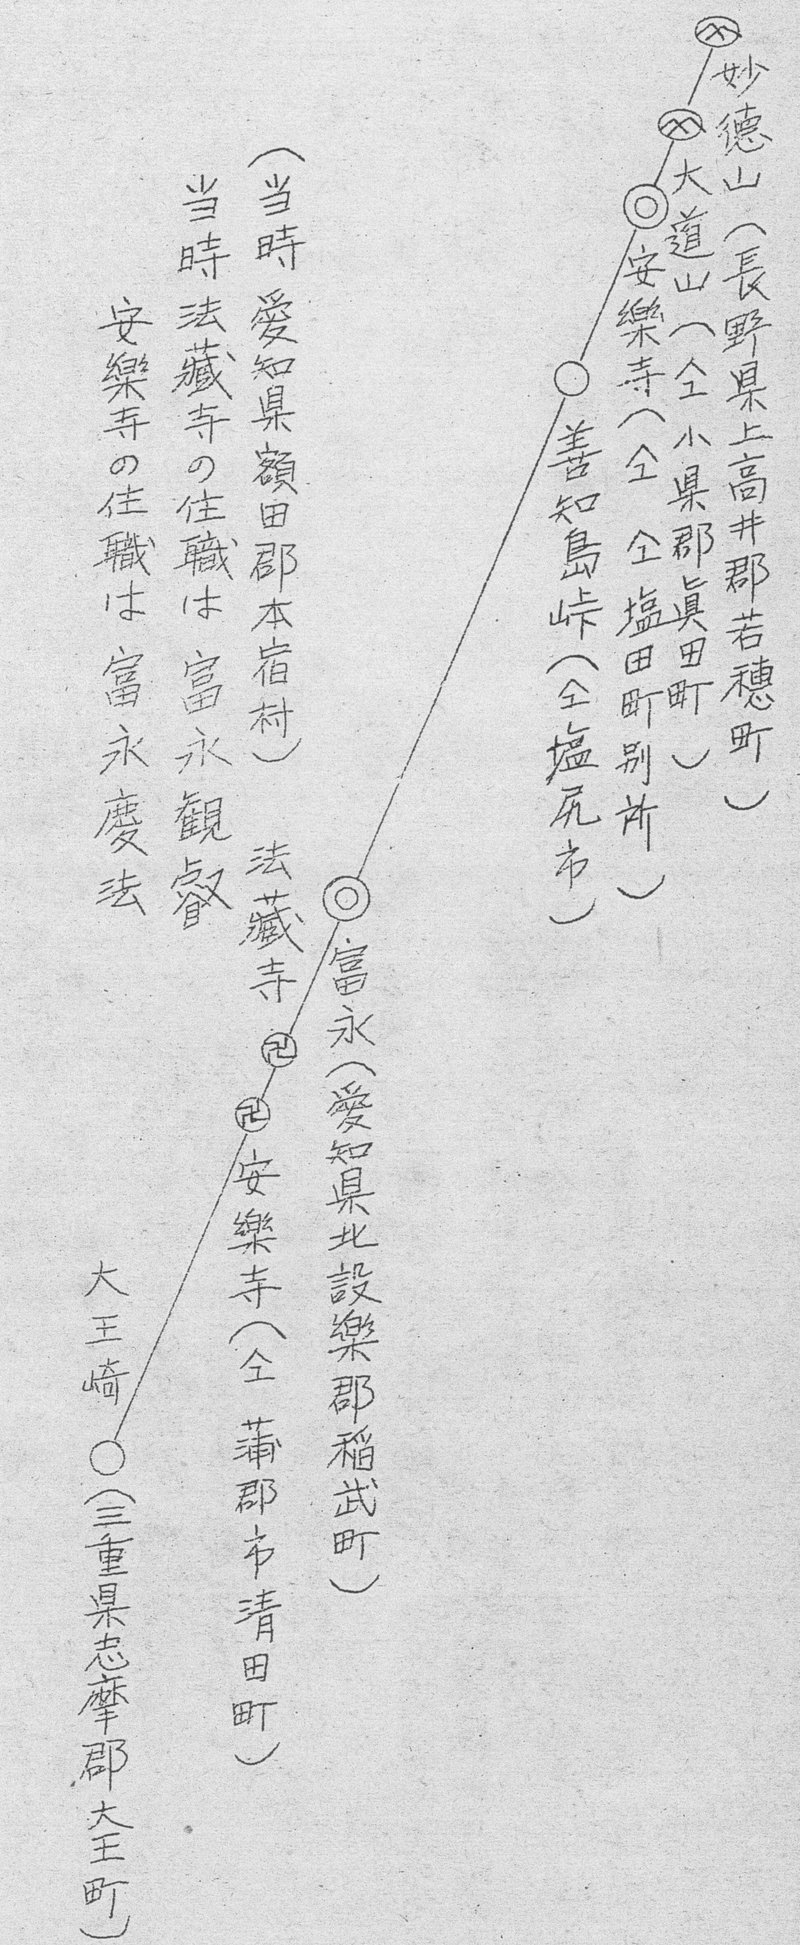 妙德山（長野県上高井郡若穂町）
大道山（仝小県郡眞田町）
安樂寺（仝仝塩田町別所）
善知鳥峠（仝塩尻市）
富永（愛知県北設樂郡稲武町）
法藏寺
（当時愛知県額田郡本宿村）
当時法藏寺の住職は富永観叡
安樂寺の住職は富永慶法
安樂寺（仝蒲郡市清田町）
大王崎
（三重県志摩郡大王町）